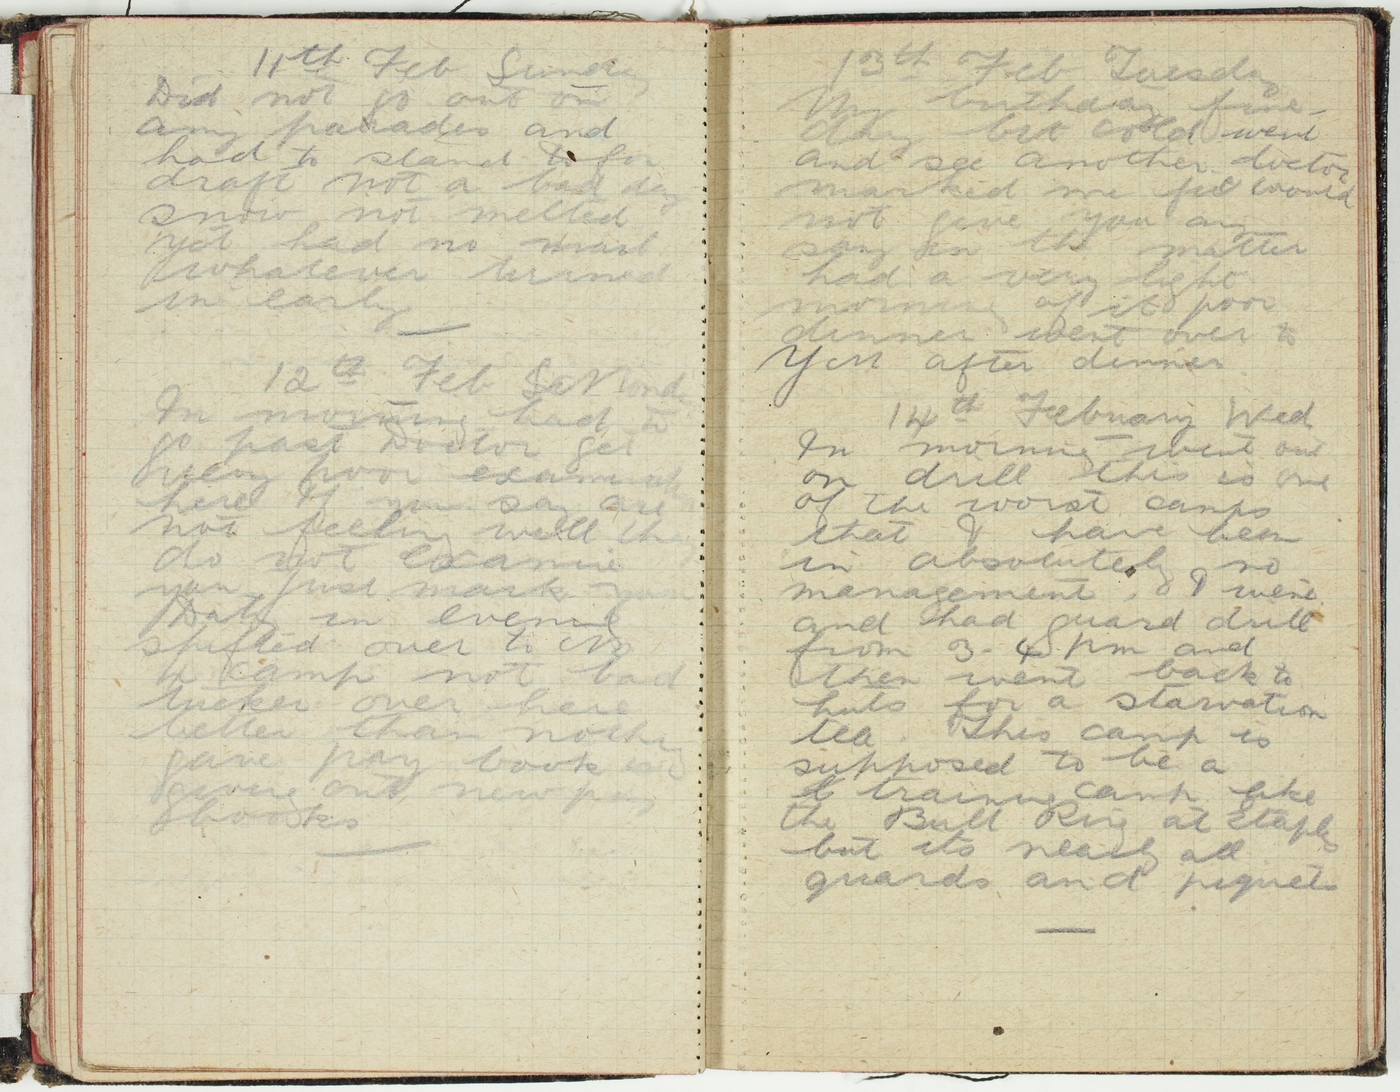 11th Feb Sunday
Did not go out on
any parades and
had to stand to for
draft not a bad day
snow not melted
yet had no mail
whatever turned
in early
12th Feb Monday
In morning had to
go past Doctor get
very poor examination
here If you say are
not feeling well they
do not examine
you just mark your
Daty in evening
shifted over to No
4 camp not bad
tucker over here
better than nothing
gave pay book in
giving out new pay
books
13th Feb Tuesday
My birthday fine
day but cold went
and see another doctor
marked me fit would
not give you any
say in the matter
had a very light
morning of it poor
dinner went over to
YM after dinner
14th February Wed
In morning went out
on drill this is one
of the worst camps
that I have been
in absolutely no
management. I went
and had guard drill
from 3-4 pm and
then went back to
huts for a starvation
tea. This camp is
supposed to be a
training camp like
the Bull Ring at Etaples
but its nearly all
guards and piquets